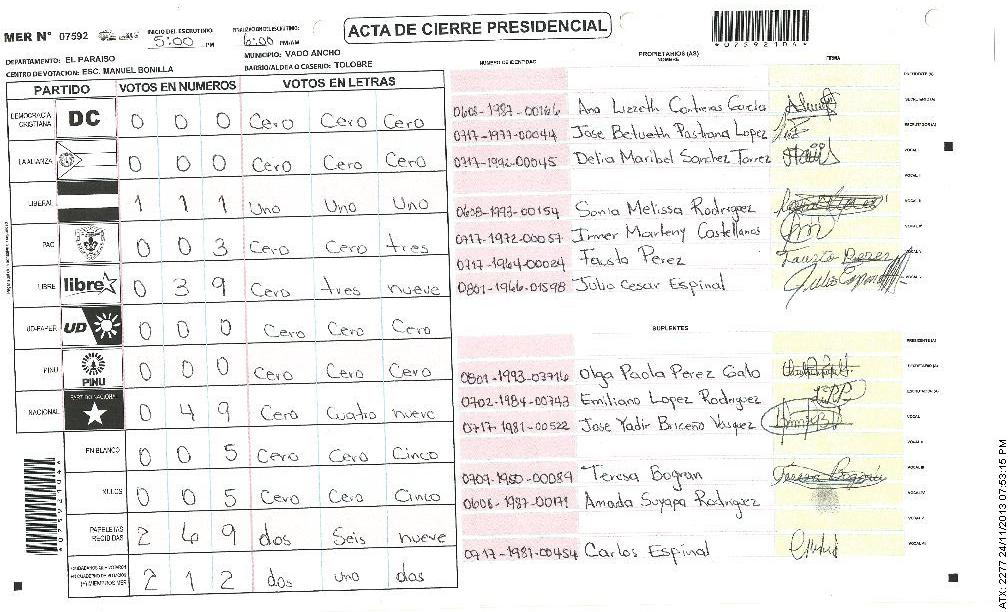 ACTA DE CIERRE PRESIDENCIAL
MER N° 07592
INICIO DEL ESCRUTINIO 5:00 PM
6:00 PM/AM
*07592104*
DEPARTAMENTO: EL PARAISO
MUNICIPIO: VADO ANCHO
CENTRO DE VOTACION: ESC. MANUEL BONILLA
BARRIO/ALDEA O CASERIO: TOLOBRE
PARTIDO VOTOS EN NUMEROS VOTOS EN LETRAS
DEMOCRACIA CRISTIANA DC 0 0 0 Cero Cero Cero
LA ALIANZA 0 0 0 Cero Cero Cero
LIBERAL 1 1 1 Uno Uno Uno
PAC 0 0 3 Cero Cero tres
LIBRE libre 0 3 9 Cero tres nueve
UD-FAPER UD 0 0 0 Cero Cero Cero
PINU PINU 0 0 0 Cero Cero Cero
NACIONAL PARTIDO NACIONAL 0 4 9 Cero Cuatro nueve
EN BLANCO 0 0 5 Cero Cero Cinco
NULOS 0 0 5 Cero Cero Cinco
PAPELETAS RECIBIDAS 2 6 9 dos Seis nueve
2 1 2 dos uno dos
NUMERO DE IDENTIDAD
PROPIETARIOS (AS)
NOMBRE
FIRMA
PRESIDENTE (A)
SECRETARIO (A)
Ana Lizzeth Contreras Garcia
ESCRUTADOR (A)
0717-1977-00044 Jose Betueth Pastrana Lopez
VOCAL I
0717-1992-00045 Delia Maribel Sanchez Torrez
VOCAL II
VOCAL III
0608-1993-00154 Sonia Melissa Rodriguez
VOCAL IV
0717-1972-00057 Irmer Marleny Castellanos
VOCAL V
0717-1964-00024 Fausto Perez Fausto Perez
VOCAL VI
0801-1966-01598 Julio Cesar Espinal
SUPLENTES
PRESIDENTE (A)
SECRETARIO (A)
0801-1993-03716 Olga Paola Perez Gato
ESCRUTADOR (A)
0702-1984-00343 Emiliano Lopez Rodriguez
VOCAL I
0717-1981-00522 Jose Yadir Briceño Vasquez
VOCAL II
VOCAL III
0704-1980-00089 Teresa Bogran
VOCAL IV
0606-1987-00171 Amada Suyapa Rodriguez
VOCAL V
VOCAL VI
0717-1987-00454 Carlos Espinal
*07592104*
ATX: 2277 24/11/2013 07:53:15 PM